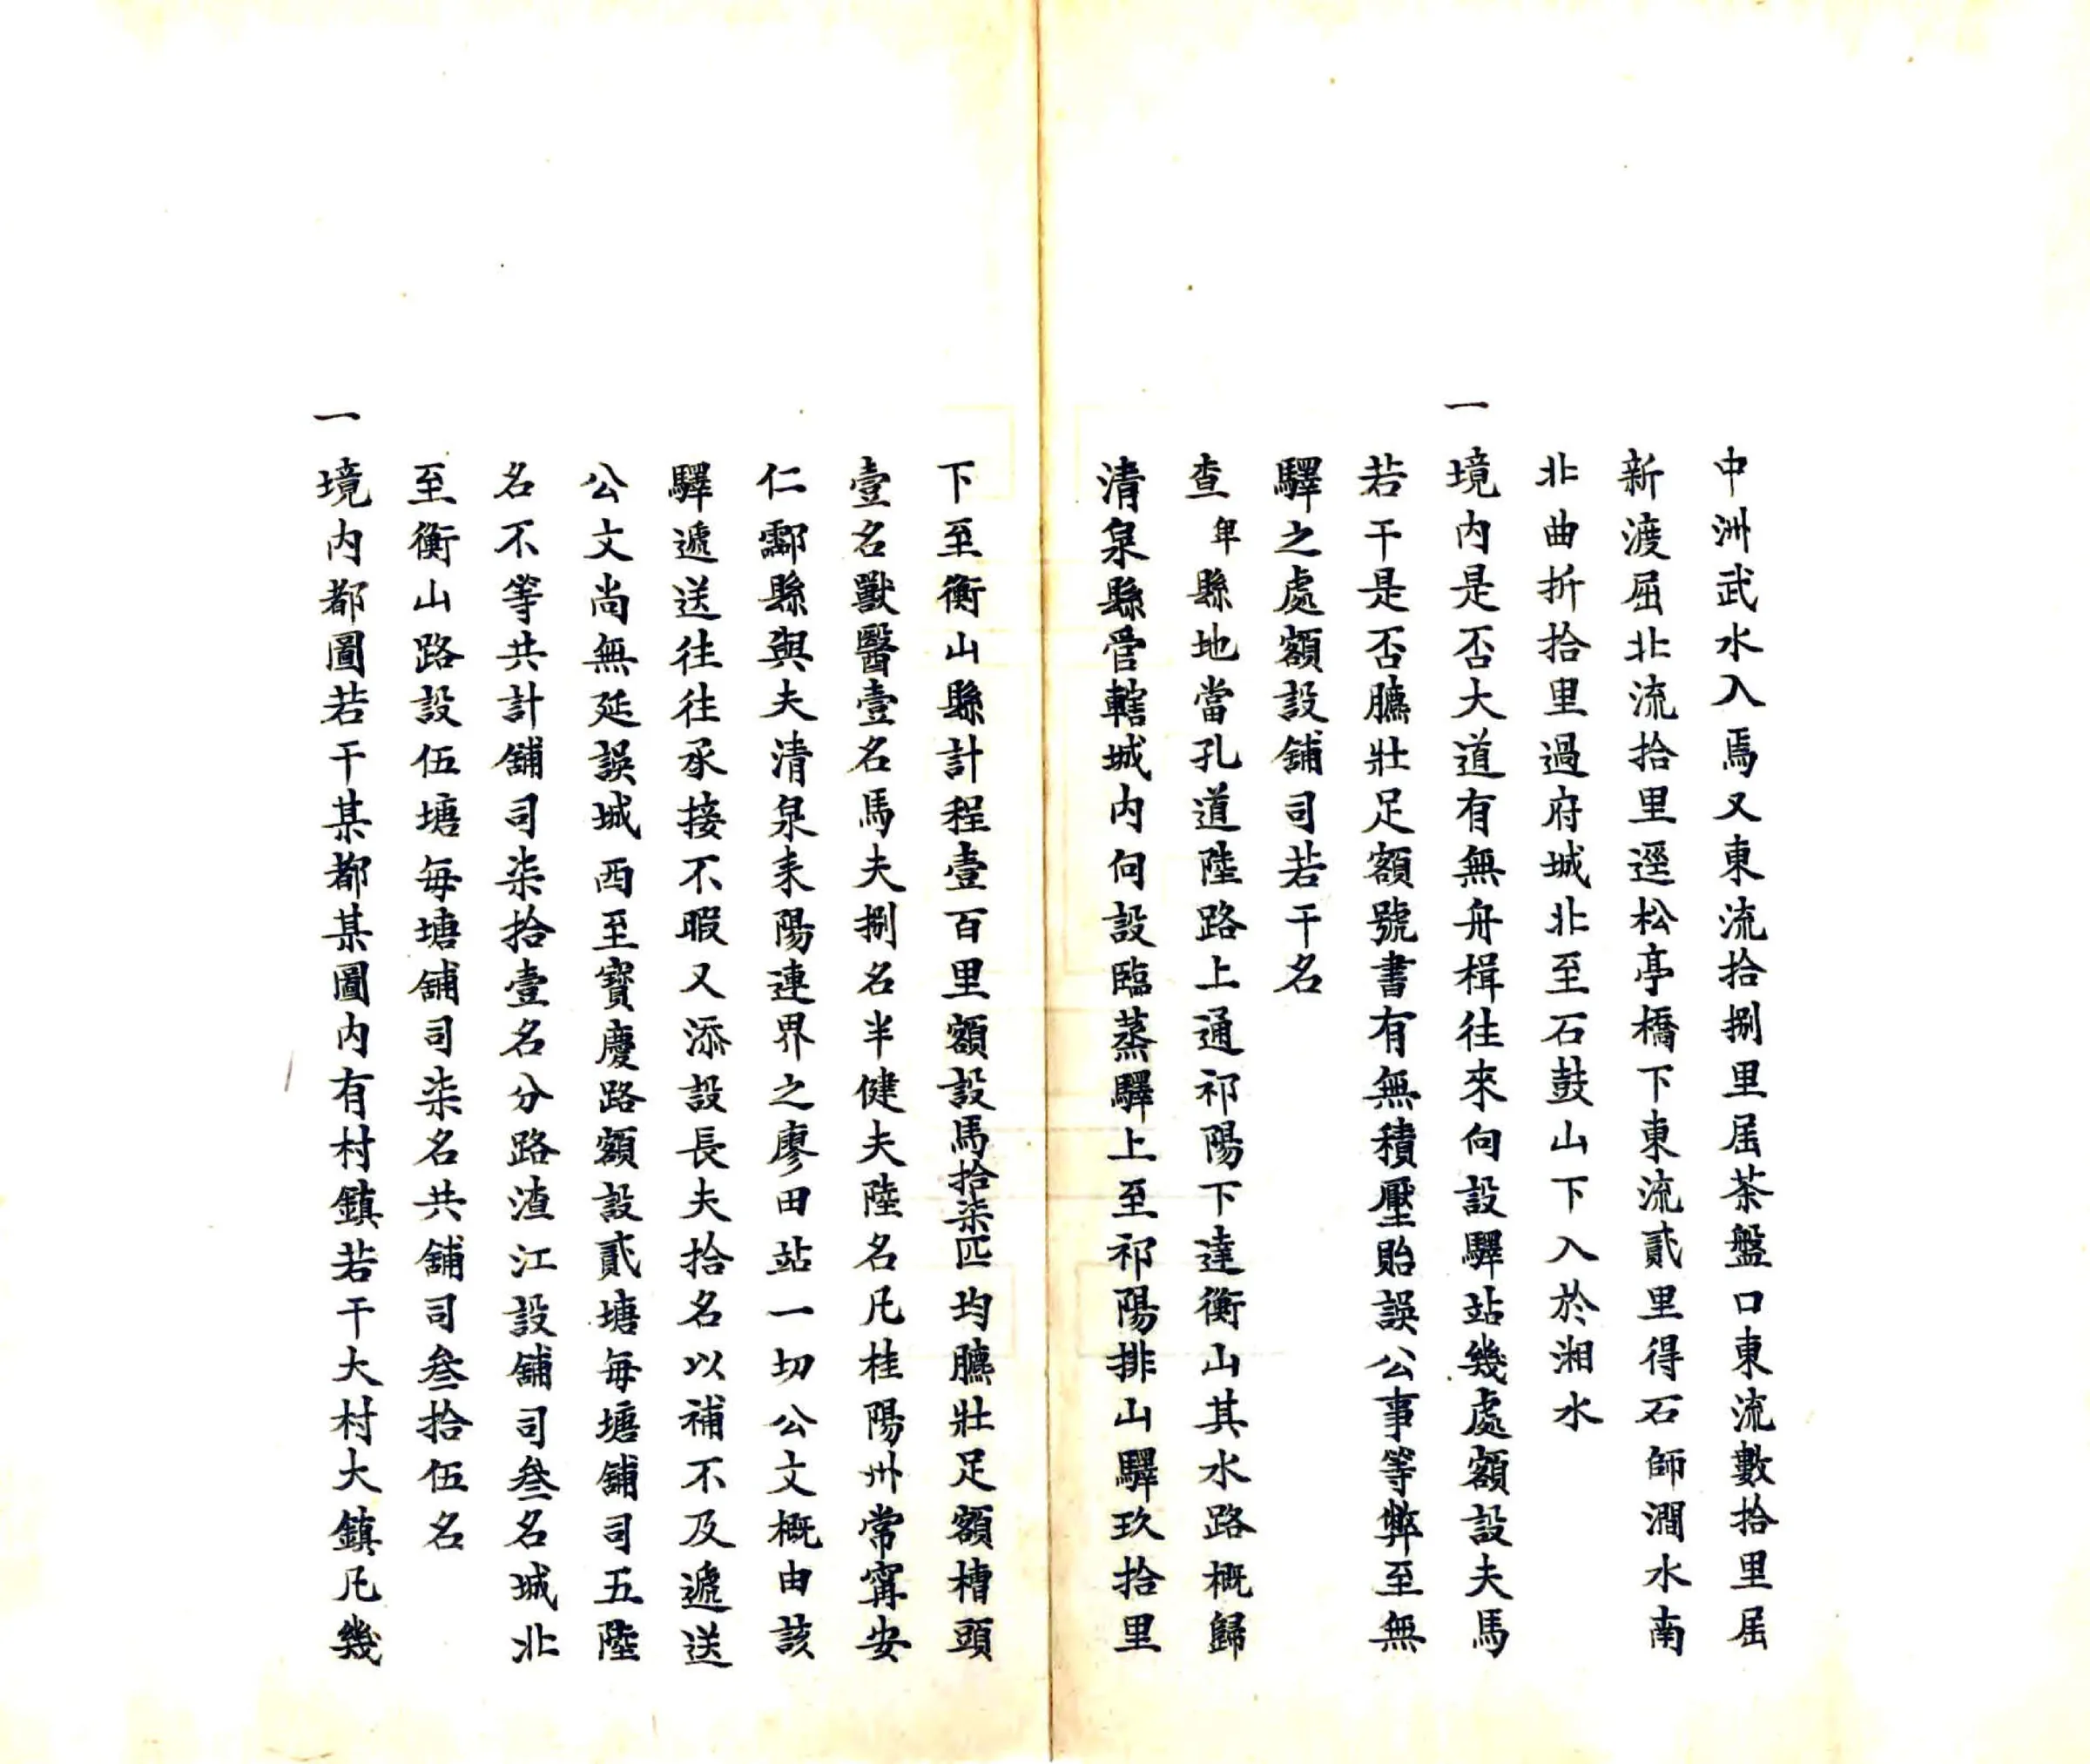 中洲武水入焉又東流拾捌里屈茶盤口東流數拾里屈
新渡屈北流拾里逕松亭橋下東流貳里得石師澗水南
北曲折拾里過府城北至石鼓山下入於湘水
一境内是否大道有無舟楫往來向設驛站幾處額設夫馬
若干是否臕壯足額號書有無積壓貽誤公事等弊至無
驛之處額設舖司若干名
查卑縣地當孔道陸路上通祁陽下達衡山其水路概歸
清泉縣管轄城内向設臨蒸驛上至祁陽排山驛玖拾里
下至衡山縣計程壹百里額設馬拾柒匹均臕壯足額槽頭
壹名獸醫壹名馬夫捌名半健夫陸名凡桂陽州常寗安
仁酃縣與夫清泉耒陽連界之廖田站一切公文概由該
驛遞送往往承接不暇又添設長夫拾名以補不及遞送
公文尚無延誤城西至寳慶路額設貳塘每塘舖司五陸
名不等共計舖司柒拾壹名分路渣江設舖司叁名城北
至衡山路設伍塘每塘舖司柒名共舖司叁拾伍名
一境内都圖若干某都某圖内有村鎮若干大村大鎮凡幾